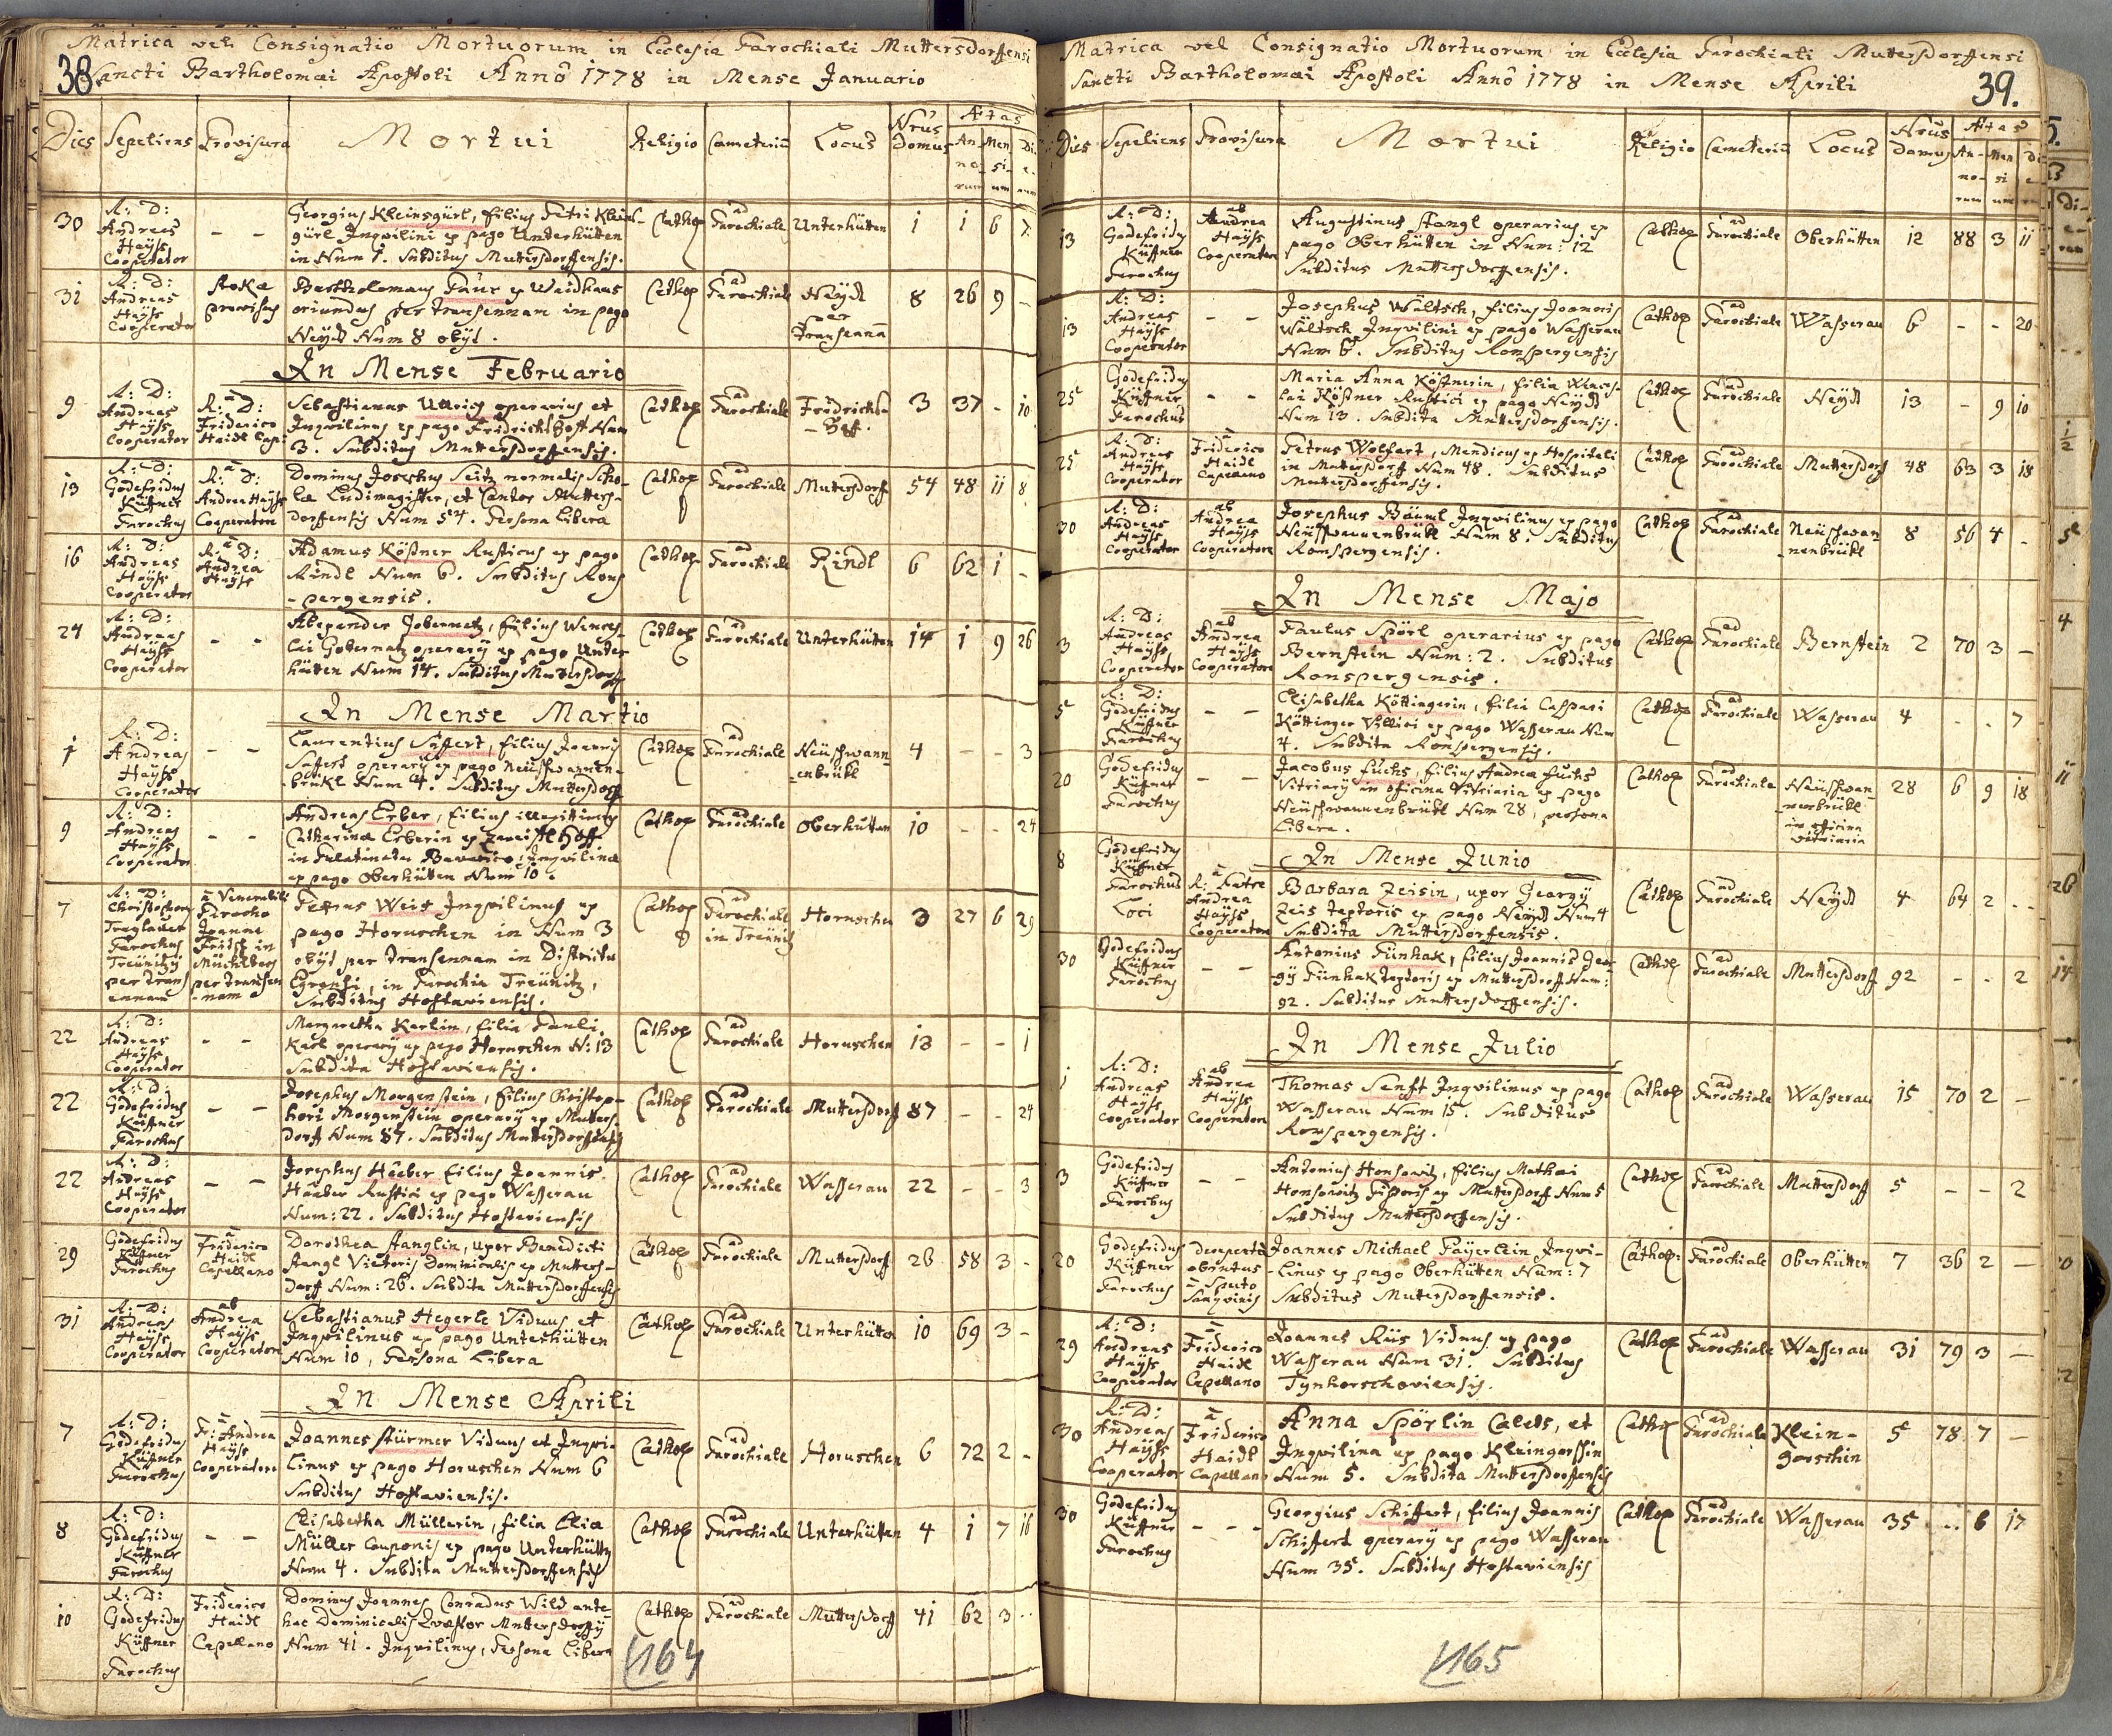 Matrica vel Consignatio Mortuorum in Ecclesia Parochiali Muttersdorffensi
38. Sancti Bartholomæi Apostoli Annô 1778 in Mense Januario
Dies Sepeliens Provisura Mortui Religio Cæmeteriū Locus Nrus Domus Ætas Annorum Mensium Dierum
30 R: D: Andreas Hayss Cooperator - - Georgius Kleinsgürl, filius Petri Kleins-
gürl Inqvilini ex pago Unterhütten
in Num 1. Subditus Muttersdorffensis. Cathol ad Parochiale Unterhütten 1 1 6 7.
31 R: D: Andreas Hayss Cooperator provisus Bartholomæus Paur ex Waidhaus
oriundus per transennam in pago
Neÿd Num 8 obÿt. Cathol ad Parochiale Neÿd per Transenna 8 26 9 -
In Mense Februario
9 R: D: Andreas Hayss Cooperator â R: D: Friderico Haidl Capl Sebastianus Ullrich operarius et
Inqvilinus ex pago Fridrichshoff Num
3. Subditus Muttersdorffensis. Cathol ad Parochiale Fridrichs-Hof. 3 37 - 10
13 R: D: Godefridus Küffner Parochus â R: D: Andrea Hayss Cooperatore Dominus Josephus Seitz normalis Scho-
læ Ludimagister, et Cantor Mutters-
dorffensis Num 54. Persona Libera Cathol ad Parochiale Mutersdorf 54 48 11 8
16 R: D: Andreas Hayss Cooperator â R: D: Andrea Hayss Adamus Kößner Rusticus ex pago
Rindl Num 6. Subditus Rons
-pergensis. Cathol ad Parochiale Rindl 6 62 1 -
24 R: D: Andreas Hayss Cooperator - - Alexander Gobernatz, filius Wences-
lai Gobernatz operarÿ ex pago Unter
hütten Num 14. Subditus Muttersdorff Cathol ad Parochiale Unterhütten 14 1 9 26
In Mense Martio
1 R: D: Andreas Hayss Cooperator - - Laurentius Saffert, filius Joannis
Saffert operarÿ ex pago Neüschwannen-
brükl Num 4. Subditus Muttersdorff Cathol ad Parochiale Neüschwann-enbrükl 4 - - 3
9 R: D: Andreas Hayss Cooperator - - Andreas Erber, filius illegitimus
Catharinæ Erberin ex
in Palatinatu Bavarico, Inqvilinæ
ex pago Oberhütten Num 10. Cathol ad Parochiale Oberhütten 10 - - 24
7 R: D: Christophorus Parochus Treünitzÿ per transennam â Venerabili Parocho Joanne Fritsch in per transennam Petrus Weis Inqvilinus ex
pago Horuschen in Num 3
obÿt per transennam in Districtu
Egrensi, in Parochia Treünitz,
Subditus Hostaviensis. Cathol ad Parochiale in Treünitz Horuschen 3 27 6 29
22 R: D: Andreas Hayss Cooperator - - Margaretha Karlin, filia Pauli
Karl operarÿ ex pago Horuschen N: 13
Subdita Hostaviensis. Cathol ad Parochiale Horuschen 13 - - 1
22 R: D: Godefridus Küffner Parochus - - Josephus Morgenstein, filius Christop-
hori Morgenstein operarÿ ex Mutters-
dorff Num 87. Subditus Muttersdorffensis Cathol ad Parochiale Muttersdorf 87 - - 24
22 R: D: Andreas Hayss Cooperator - - Josephus Haaber filius Joannis
Haaber Rustici ex pago Wasserau
Num: 22. Subditus Hostaviensis Cathol ad Parochiale Wasserau 22 - - 3
29 Godefridus Küffner Parochus â Friderico Haidl Capellano Dorothea Stanglin, uxor Benedicti
Stangl Victoris Dominicalis ex Mutters-
dorf Num: 26. Subdita Muttersdorffensis Cathol ad Parochiale Muttersdorf 26 58 3 -
31 R: D: Andreas Hayss Cooperator ab Andrea Hayss Cooperatore Sebastianus Hegerle Viduus et
Inqvilinus ex pago Unterhütten
Num 10, Persona Libera Cathol ad Parochiale Unterhütten 10 69 3 -
In Mense Aprili
7 R: D: Godefridus Küffner Parochus â Fr: Andrea Hayss Cooperatore Joannes Stürmer Viduus et Inqvi-
linus ex pago Horuschen Num 6
Subditus Hostaviensis. Cathol ad Parochiale Horuschen 6 72 2 -
8 R: D: Godefridus Küffner Parochus - - Elisabetha Müllerin, filia Eliæ
Müller Cauponis ex pago Unterhüttn
Num 4. Subdita Muttersdorffensis Cathol ad Parochiale Unterhütten 4 1 7 16
10 R: D: Godefridus Küffner Parochus â Friderico Haidl Capellano Dominus Joannes Conradus Wild ante-
hac Dominicalis Qvæstor Muttersdorffÿ
Num 41. Inqvilinus, Persona Libera Cathol ad Parochiale Muttersdorff 41 62 3 ..
164
Matrica vel Consignatio Mortuorum in Ecclesia Parochiali Muttersdorffensi
Sancti Bartholomæi Apostoli Annô 1778 in Mense Aprili 39.
Dies Sepeliens Provisura Mortui Religio Cæmeteriū Locus Nrus Domus Ætas Annorum Mensium Di
13 R: D: Godefridus Küffner Parochus ab Andrea Hayss Cooperatore Augustinus Stangl operarius ex
pago Oberhütten in Num: 12
Subditus Muttersdorffensis. Cathol ad Parochiale Oberhütten 12 88 3 11
13 R: D: Andreas Hayss Cooperator - - Josephus Wältsch, filius Joannis
Wältsch Inqvilini ex pago Wasserau
Num 6. Subditus Ronspergensis Cathol ad Parochiale Wasserau 6 - - 20
25 Godefridus Küffner Parochus - - Maria Anna Kößnerin, filia Wences-
lai Kößner Rustici ex pago Neÿd
Num 13. Subdita Muttersdorffensis. Cathol ad Parochiale Neÿd 13 - 9 10
25 R: D: Andreas Hayss Cooperator â Friderico Haidl Capellano Petrus Wolfert, Mendicus ex Hospitali
in Muttersdorff Num 48. Subditus
Muttersdorffensis. Cathol ad Parochiale Muttersdorf 48 63 3 18
30 R: D: Andreas Hayss Cooperator ab Andrea Hayss Cooperatore Josephus Bäuml Inqvilinus ex pago
Neüschwannenbrükl Num 8. Subditus
Ronspergensis. Cathol ad Parochiale Neüschwan-nenbrükl 8 56 4 -
In Mense Majo
3 R: D: Andreas Hayss Cooperator ab Andrea Hayss Cooperatore Paulus Spörl operarius ex pago
Bernstein Num: 2. Subditus
Ronspergensis. Cathol ad Parochiale Bernstein 2 70 3 -
5 R: D: Godefridus Küffner Parochus - - Elisabetha Köttingerin, filia Caspari
Köttinger Villici ex pago Wasserau Num
4. Subdita Ronspergensis. Cathol ad Parochiale Wasserau 4 - - 7
20 Godefridus Küffner Parochus - - Jacobus Fuchs, filius Andreæ Fuchs
Vitriarÿ in officina Vitriaria ex pago
Neüschwannenbrükl Num 28, persona
Libera. Cathol ad Parochiale Neüschwan-nenbrükl in officina vitriaria 28 6 9 18
In Mense Junio
8 Godefridus Küffner Parochus Loci â R: Patre Andrea Hayss Cooperatore Barbara Zeisin, uxor Georgÿ
Zeis textoris ex pago Neÿd Num 4
Subdita Muttersdorfensis. Cathol ad Parochiale Neÿd 4 64 2 ..
30 Godefridus Küffner Parochus - - Antonius Fünhak, filius Joannis Geor-
gÿ Fünhak textoris ex Muttersdorff Num:
92. Subditus Muttersdorffensis. Cathol ad Parochiale Muttersdorff 92 - - 2
In Mense Julio
1 R: D: Andreas Hayss Cooperator ab Andrea Hayss Cooperatore Thomas Senft Inqvilinus ex pago
Wasserau Num 15. Subditus
Ronspergensis. Cathol ad Parochiale Wasserau 15 70 2 -
3 Godefridus Küffner Parochus - - Antonius Honsowitz, filius Mathæi
Honsowitz Pistoris ex Muttersdorff Num 5
Subditus Muttersdorffensis. Cathol ad Parochiale Muttersdorff 5 - - 2
20 Godefridus Küffner Parochus derepente obrutus â Sputo Sanqvinis Joannes Michael Payerlein Inqvi-
-linus ex pago Oberhütten Num: 7
Subditus Mutersdorfensis. Cathol: ad Parochiale Oberhütten 7 36 2 -
29 R: D: Andreas Hayss Cooperator â Friderico Haidl Capellano Joannes Riis Viduus ex pago
Wasserau Num 31. Subditus
Tynhorschoviensis. Cathol ad Parochiale Wasserau 31 79 3 -
30 R: D: Andreas Hayss Cooperator â Friderico Haidl Capellano Anna Spörlin Cælebs, et
Inqvilina ex pago Kleingorschin
Num 5. Subdita Muttersdorffensis Cathol ad Parochiale Klein-gorschin 5 78 7 -
30 Godefridus Küffner Parochus - - - Georgius Schiffert, filius Joannis
Schiffert operarÿ ex pago Wasserau
Num 35. Subditus Hostaviensis Cathol ad Parochiale Wasserau 35 .. 6 17
165